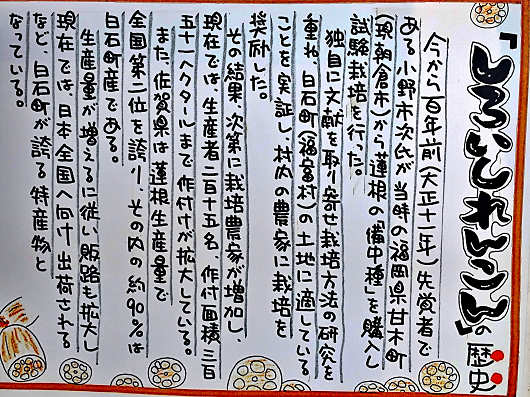 「しろいしれんこん」の歴史
今から百年前(大正十一年)先覚者で
ある小野市次氏が当時の福岡県甘木町
(現朝倉市)から蓮根の「備中種」を購入し
試験栽培を行った。
独自に文献を取り寄せ栽培方法の研究を
重ね、白石町(福富村)の土地に適している
ことを実証し村内の農家に栽培を
奨励した。
その結果、次第に栽培農家が増加し、
現在では、生産者二百十五名、作付面積三百
五十一ヘクタールまで作付けが拡大している。
また、佐賀県は蓮根生産量で
全国第二位を誇り、その内の約90%は
白石町産である。
生産量が増えるに従い販路も拡大し
現在では、日本全国へ向け出荷される
など、白石町が誇る特産物と
なっている。